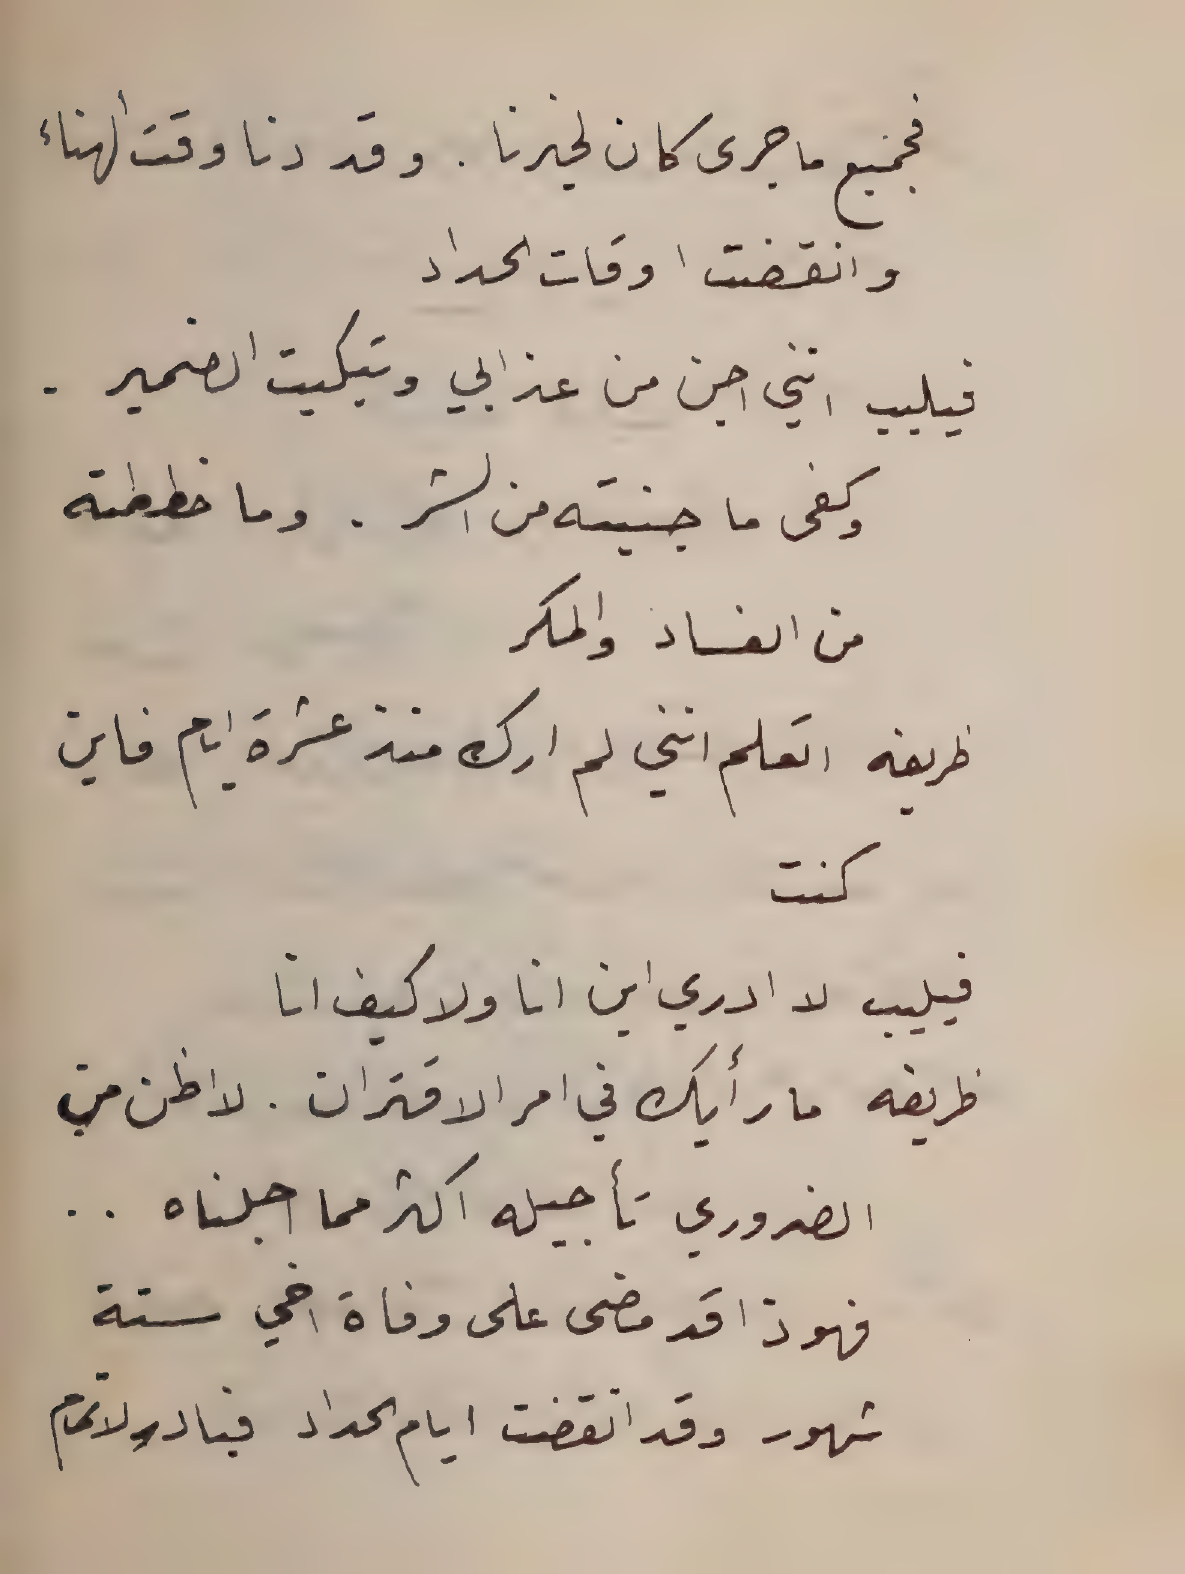 فجميع ما جرى كان لخيرنا . وقد دنا وقت الهناء
وانقضت اوقات الحداد
فيليب انني اجن من عذابي وتبكيت الضمير .
وكفى ما جنيته من الشر . وما خططته
من الفساد والمكر
ظريفه اتعلم انني لم ارك منذ عشرة ايام فاين
كنت
فيليب لا ادري اين انا ولا كيف انا
ظريفه ما رأيك في امر الاقتران . لا اظن من
الضروري تأجيله اكثر مما اجلناه . .
فهوذا قد مضى على وفاة اخي ستة
شهور وقد انقضت ايام الحداد فبادر لاتمام